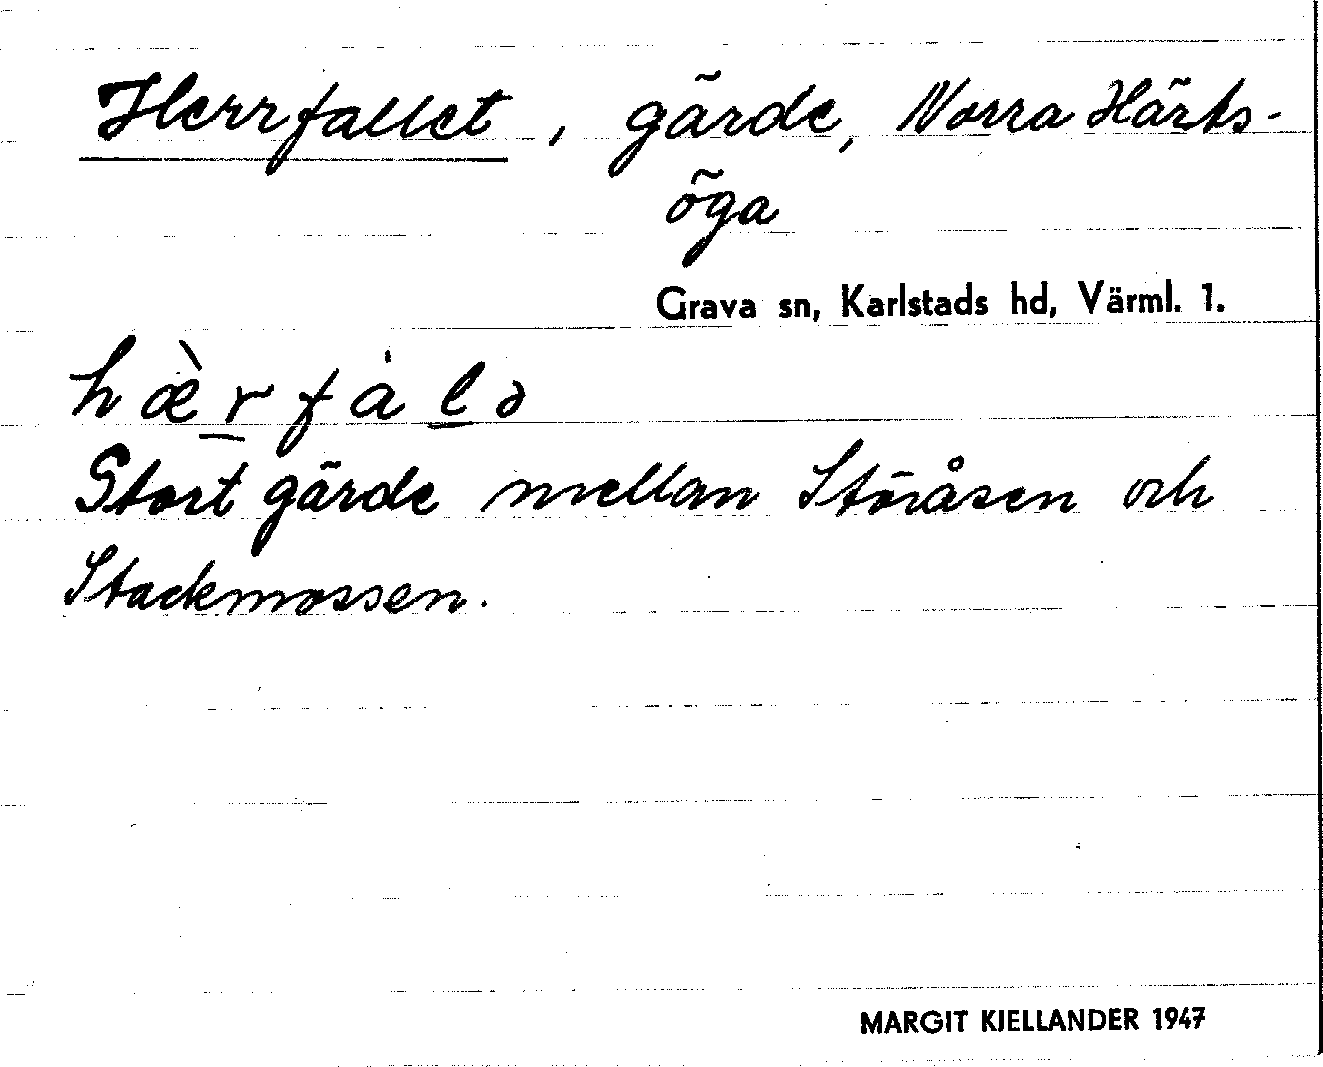 Herrfallet, gärde, Norra Härts-
öga
Grava sn, Karlstads hd, Värml. 1.
hæ̀r̲fàl̲ə
Stort gärde mellan Störåsen och
Stackmossen.
MARGIT KJELLANDER 1947